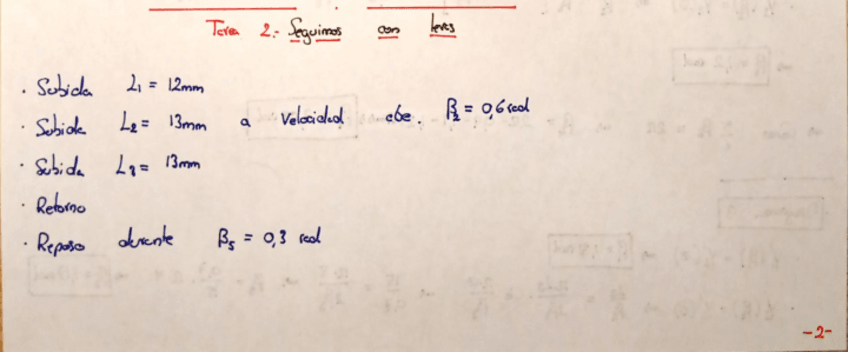 Tarea 2.- Seguimos con levas
· Subida L₁ = 12mm
· Subida L₂ = 13mm a velocidad cte. β₂ = 0,6 rad
· Subida L₃ = 13mm
· Retorno
· Reposo durante β₅ = 0,3 rad
-2-